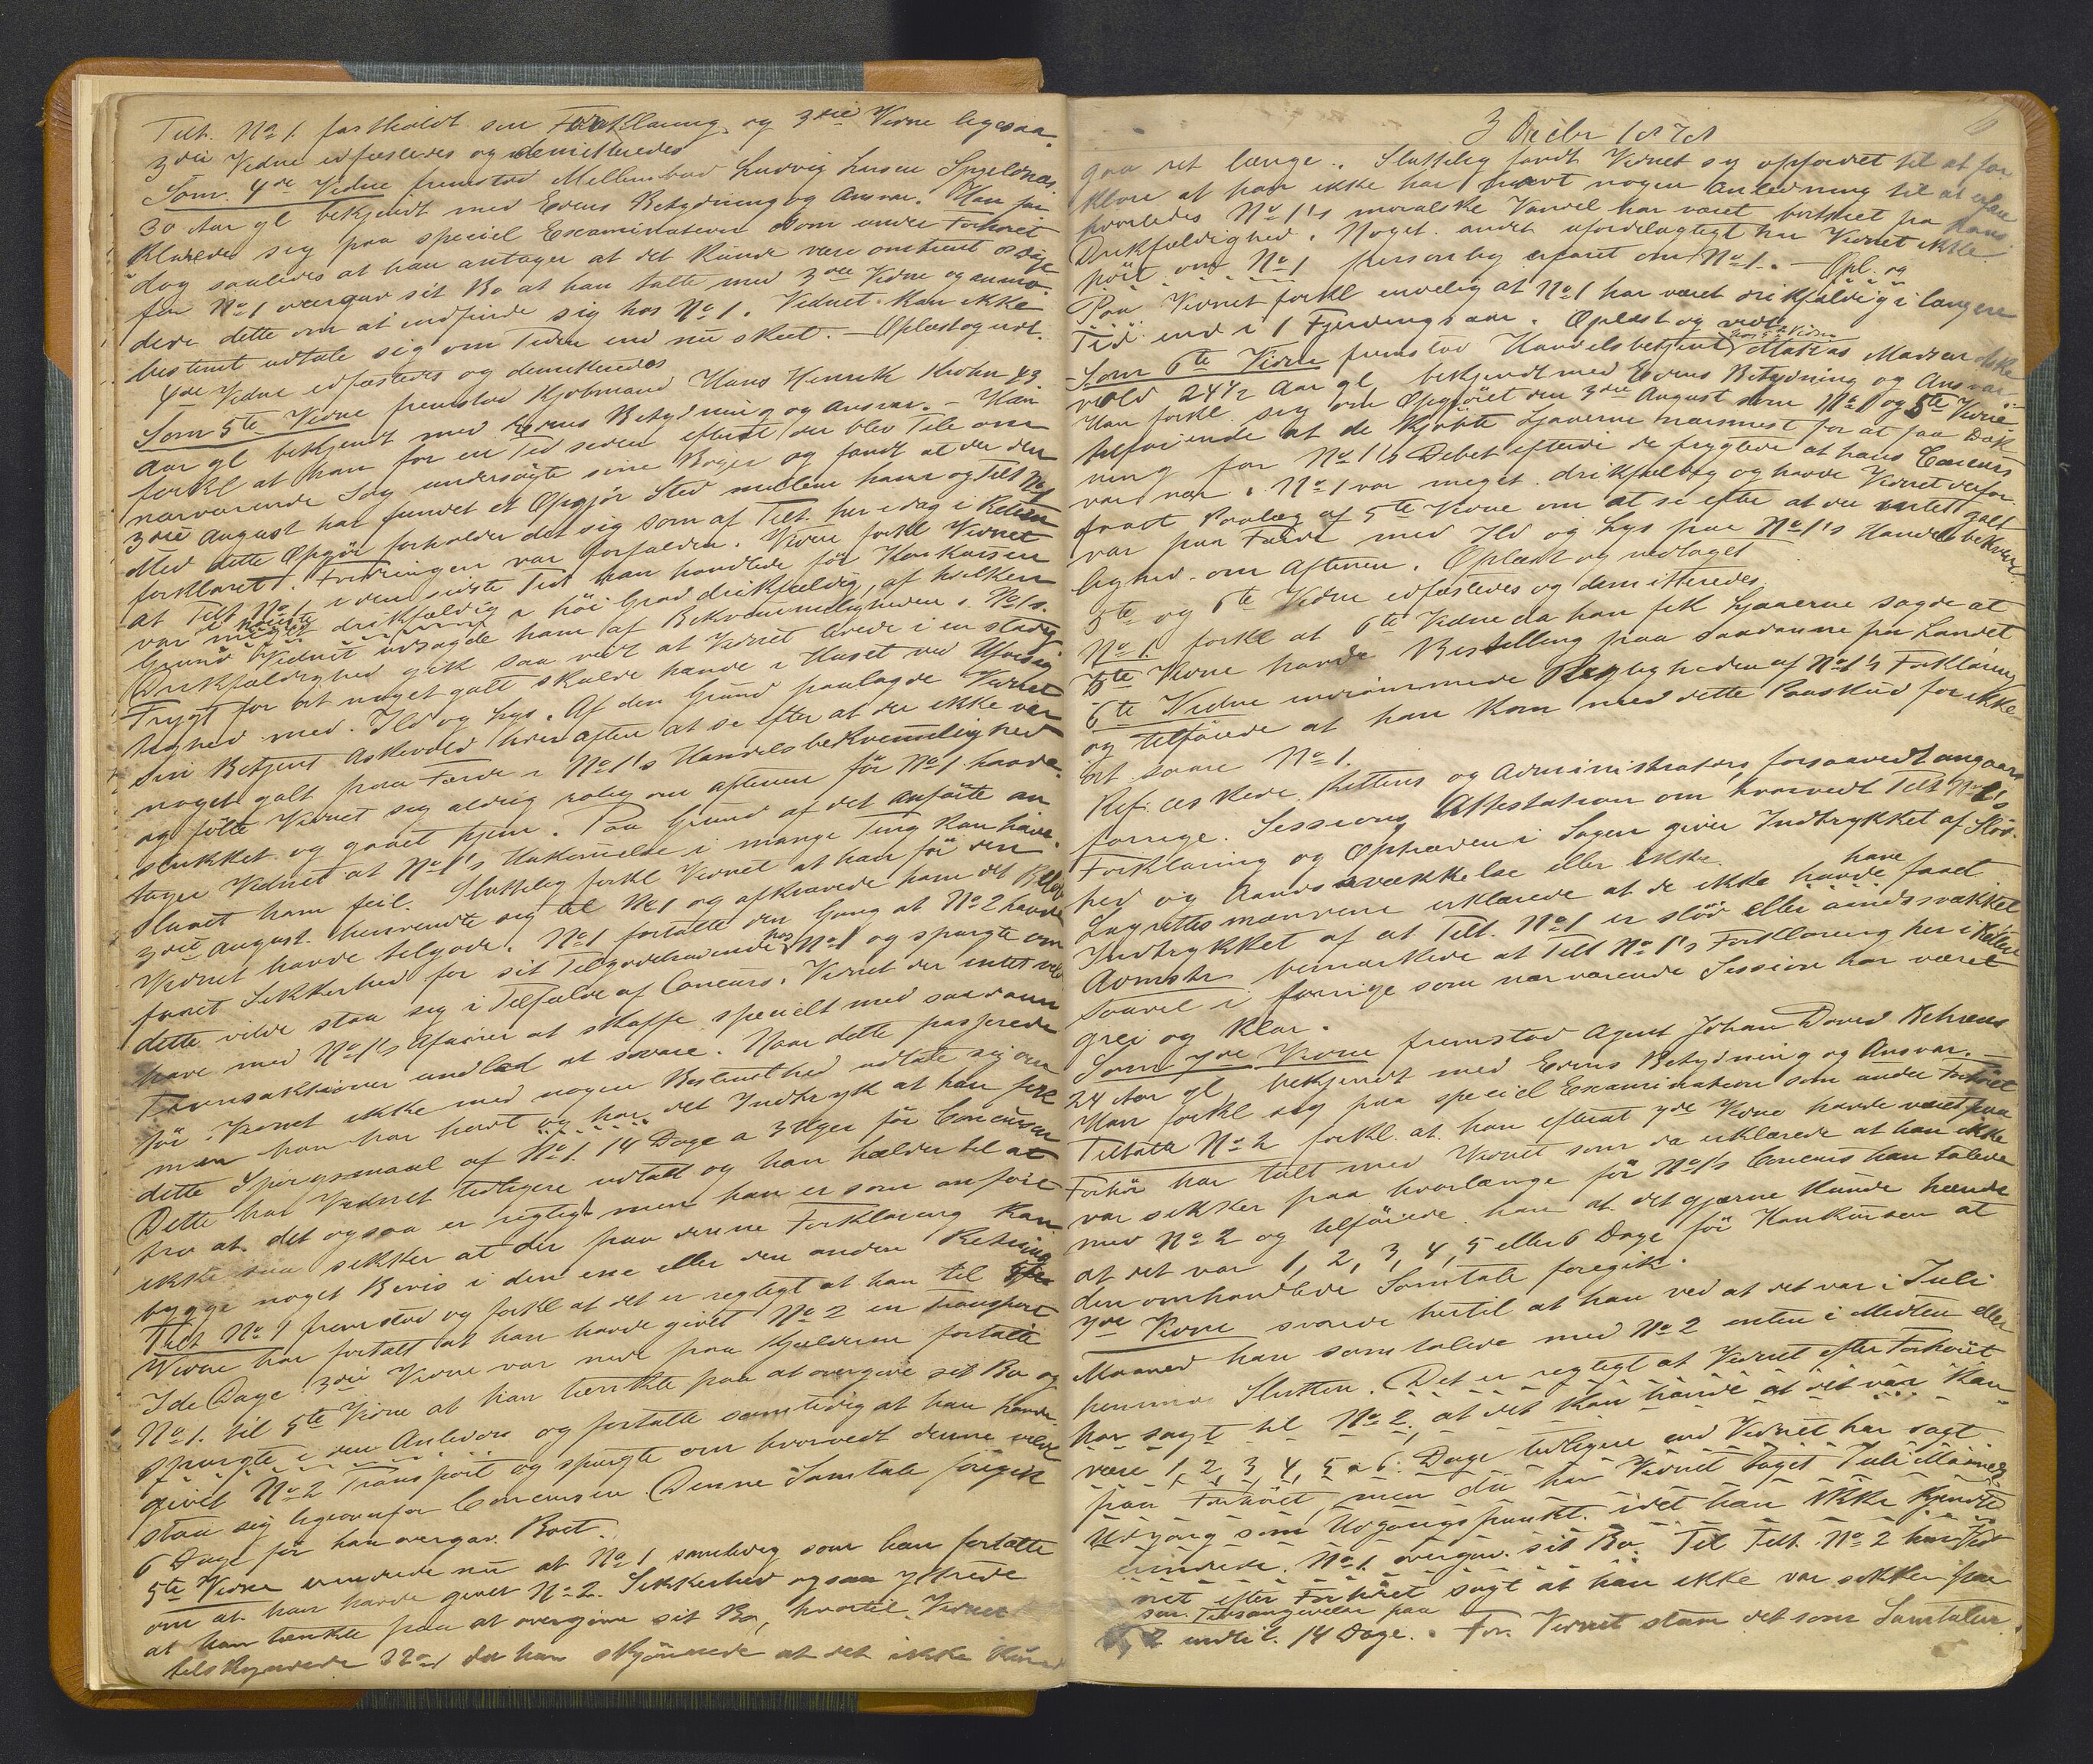 Tilt. No 1. fastholdt sin Forklaring og 3die Vidne ligesaa.
3die Vidne edfæstedes og demitteredes
Som 4de Vidne fremstod Ludvig Larsen
30 Aar gl bekjendt med Edens Betydning og Ansvar. Han for
klarede sig paa speciel Examination som under Forhøret
dog saaledes at han antager at det kunde være omtrent 8 Dage
før No 1 overgav sit Bo at han talte med 3die Vidne og anmo-
dede dette om at indfinde sig hos No 1. Vidnet kan ikke
bestemt udtale sig om Tiden end nu skeet. – Oplæst og vedt.
4de Vidne edfæstedes og demitteredes
Som 5te Vidne fremstod Kjøbmand Hans Henrik Krohn 43
Aar gl bekjendt med Edens Betydning og Ansvar. – Han
forkl at han for en Tid siden efterat der blev Tale om
nærværende Sag undersøgte sine Bøger og fandt at der den
3die August har fundet et Opgjør Sted mellem ham og Tilt No 1
Med dette Opgjør forholder det sig som af Tilt. her idag i Retten
forklaret. Fordringen var forfalden. Videre forkl Vidnet
at Tilt No 1 i den sidste Tid han handlede før Konkursen
var meget drikfældig i höi Grad drikfældig, af hvilken
Grund Vidnet udsagde ham af Bekvemmeligheden. No 1s.
Drikfældighed gik saa vidt at Vidnet levede i en stadig
Frygt for at noget galt skulde hænde i Huset ved Uforsig
tighed med Ild og Lys. Af den Grund paalagde Vidnet
sin Betjent Askevold hver Aften at se efter at der ikke var
noget galt paa Færde i No 1's Handelsbekvemmelighed
og følte Vidnet sig aldrig rolig om aftenen før No 1 havde
slukket og gaaet hjem. Paa Grund af det anførte an
tager Vidnet at No 1's Hukommelse i mange Ting kan have
slaaet ham feil. Sluttelig forkl Vidnet at han før den
3die August henvendte sig til No 1 og afkrævede ham det Beløb
Vidnet havde tilgode. No 1 fortalte den Gang at No 2 havde
faaet Sikkerhed for sit Tilgodehavende hos No 1 og spurgte om
dette vilde staa sig i Tilfælde af Concurs. Vidnet der intet vilde
have med No 1's Affairer at skaffe specielt med saadanne
Transaktioner undlod at svare. Naar dette passerede
tør Vidnet ikke med nogen Bestemthed udtale sig om
men han har havt og har det Indtryk at han fik
dette Spørgsmaal af No 1. 14 Dage a 3 Uger før Concursen
Dette har Vidnet tidligere udtalt og han hælder til at
tro at det ogsaa er rigtigt men han er som anført
ikke saa sikker at der paa denne Forklaring kan
bygge noget Bevis i den ene eller den anden Retning
Tilt No 1 fremstod og forkl at det er rigtigt at han til 5te
Vidne har fortalt at han havde givet No 2 en Transport
I de Dage 3die Vidne var nede paa fortalte
No 1. til 5te Vidne at han tænkte paa at overgive sit Bo og
spurgte i den Anledn og fortalte samtidig at han havde
givet No 2 Transport og spurgte om hvorvidt denne vilde
staa sig ligeoverfor Concursen Denne Samtale foregik
6 Dage før han overgav Boet.
5te Vidne erindrede nu at No 1 samtidig som han fortalte
om at han havde givet No 2. Sikkerhed ogsaa yttrede
at han tænkte paa at overgive sit Bo, hvortil Vidnet
tilskyndede da han skjønnede at det ikke kunde
3 Decbr 1878
gaa ret længe. Sluttelig fandt Vidnet sig opfordret til at for
klare at han ikke har havt nogen Anledning til at erfare
hvorledes No 1's moralske Vandel har været bortseet fra hans
Drikfældighed. Noget andet ufordelagtigt har Vidnet ikke
hört om No 1 personlig erfaret om No 1. – Opl. og
Paa Vidnet forkl endelig at No 1 har været drikfældig i længere
Tid end i 1 Fjerdingsaar. Oplæst og vedt.
Som 6te Vidne fremstod Handelsbetjent Mattias Madsen Aske
vold 24½ Aar gl, bekjendt med Edens Betydning og Ansvar –
Han forkl sig om Opgjøret den 3die August som No 1 og 5te Vidne
tilføiende at de kjøbte Ljaaerne nærmest for at faa Dæk
ning for No 1's Debet efterde de frygtede at hans Concurs
var nær. No 1 var meget drikfældig og havde Vidnet derfor
faaet Paalæg af 5te Vidne om at se efter at der intet galt
var paa Færde med Ild og Lys paa No 1's Handelsbekvem
lighed om Aftenen. Oplæst og vedtaget
5te og 6te Vidne edfæstedes og demitteredes.
No 1. forkl at 6te Vidne da han fik Ljaaerne sagde at
5te Vidne havde Bestilling paa saadanne fra Landet
6te Vidne indrømmede Rigtigheden af No 1's Forklaring
og tilføiede at han kom med dette Paaskud for ikke
at saare No 1.
Ref. æskede Rettens og Administrators forsaavidt angaar
forrige Sessions Attestation om hvorvidt Tilt No 1's
Forklaring og Optræden i Sagen giver Indtrykket af Sløv-
hed og Aandssvækkelse eller ikke.
Lagrettesmændene erklærede at de ikke havde have faaet
Indtrykket af at Tilt. No 1 er sløv eller aandssvækket
Admstr bemærkede at Tilt No 1's Forklaring her i Retten
saavel i forrige som nærværende Session har været
grei og klar.
Som 7de Vidne fremstod Agent Johan David Behrens
24 Aar gl, bekjendt med Edens Betydning og Ansvar. –
Han forkl sig paa speciel Examination som under Forhøret
Tiltalte No 2 forkl. at han efterat 7de Vidne havde været paa
Forhør har talt med Vidnet som da erklærede at han ikke
var sikker paa hvorlænge før No 1's Concurs han talede
med No 2 og tilføiede han at det gjærne kunde hænde
at det var 1, 2, 3, 4, 5 eller 6 Dage før Konkursen at
den omhandlede Samtale foregik.
7de Vidne svarede hertil at han ved at det var i Juli
Maaned han samtalede med No 2 enten i Midten eller
henimod Slutten. Det er rigtigt at Vidnet efter Forhøret
har sagt til No 2. at det kan hænde at det var kan
være 1, 2, 3, 4, 5 a 6 Dage tidligere end Vidnet har sagt
paa Forhøret, men da har Vidnet taget Juli Maaneds
Udgang som Udgangspunkt idet han ikke
No 1 overgav sit Bo. Til Tilt. No 2 har Vid
net efter Forhøret sagt at han ikke var sikker paa
sin Tidsangivelse paa
indtil 14 Dage. For Vidnet staar det som Samtalen